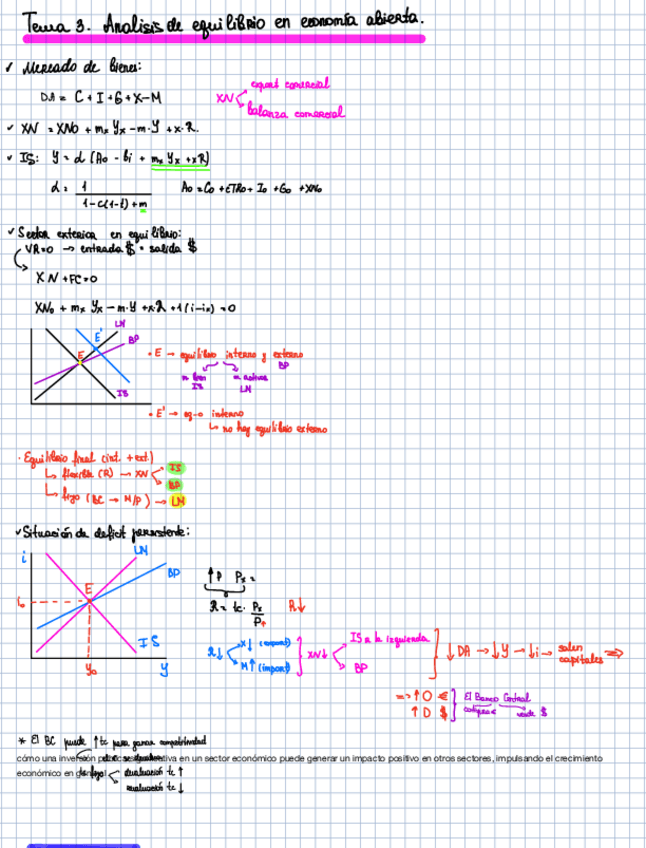 Tema 3. Analisis de equilibrio en economía abierta.
✓ Mercado de bienes:
DA = C + I + G + X - M
XN
export comercial
balanza comercial
✓ XN = XN0 + mx Yx - m·Y + x·R.
✓ IS: Y = α (A0 - bi + mx Yx + xR)
α = 1 / 1-c(1-t)+m
A0 = C0 + cTR0 + I0 + G0 + XN0
✓ Sector exterior en equilibrio:
VR=0 → entrada $ = salida $
XN + FC = 0
XN0 + mx Yx - m·Y + x·R + λ(i-ix) = 0
LM
E'
BP
E
IS
· E → equilibrio interno y externo
BP
= bien
IS
= activos
LM
· E' → eq-o interno
↳ no hay equilibrio externo
· Equilibrio final (int. + ext.)
↳ flexible (R) → XN
IS
BP
↳ fijo (BC → M/P) → LM
✓ Situación de deficit persistente:
i
LM
BP
E
i0
IS
Y0
Y
↑P Px =
R = tc · Px / P↑
R↓
R↓
X↓ (export)
M↑ (import)
XN↓
IS a la izquierda
BP
↓DA → ↓Y → ↓i → salen capitales ⇒
=> ↑O €
↑D $
El Banco Central
compra € vende $
* El BC puede ↑tc para ganar competitividad
cómo una inversión en un sector económico puede generar un impacto positivo en otros sectores, impulsando el crecimiento
económico en
tc fijo
devaluación tc ↑
revaluación tc ↓